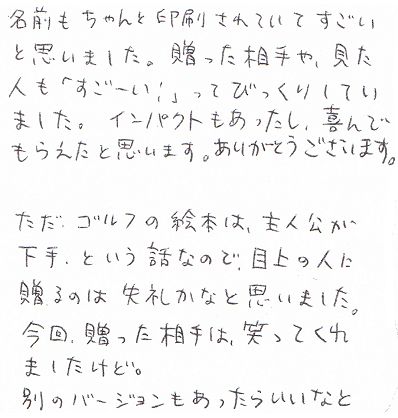 名前もちゃんと印刷されていてすごい
と思いました。贈った相手や、見た
人も「すご〜い!」ってびっくりしてい
ました。インパクトもあったし、喜んで
もらえたと思います。ありがとうございます。
ただ、ゴルフの絵本は、主人公が
下手、という話なので、目上の人に
贈るのは失礼かなと思いました。
今回、贈った相手は、笑ってくれ
ましたけど。
別のバージョンもあったらいいなと